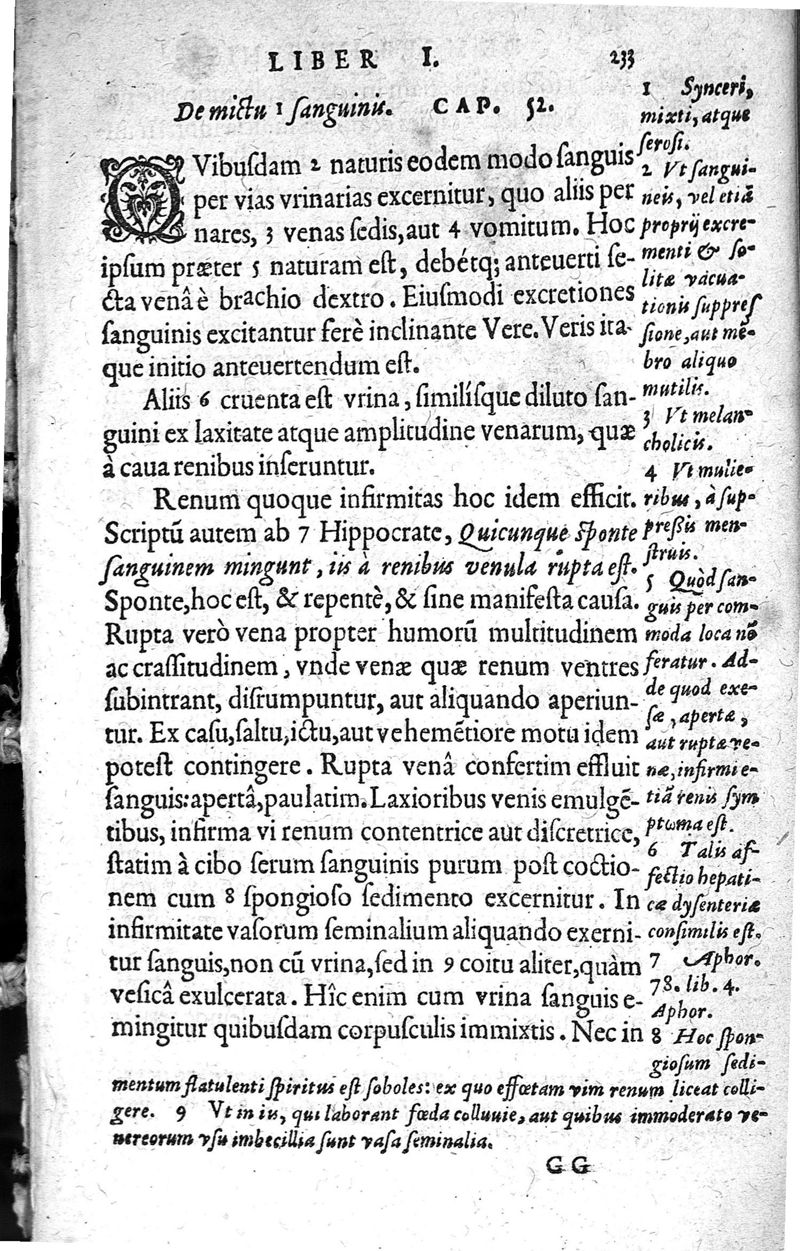 LIBER I. 233
De mictu 1 ſanguinis. CAP. 52.
QVibuſdam 2 naturis eodem modo ſanguis
per vias vrinarias excernitur, quo aliis per
nares, 3 venas ſedis, aut 4 vomitum. Hoc
ipſum præter 5 naturam eſt, debétq; anteuerti ſe-
cta venâ è brachio dextro. Eiuſmodi excretiones
ſanguinis excitantur ferè inclinante Vere. Veris ita-
que initio anteuertendum eſt.
Aliis 6 cruenta eſt vrina, ſimilíſque diluto ſan-
guini ex laxitate atque amplitudine venarum, quæ
à caua renibus inſeruntur.
Renum quoque infirmitas hoc idem efficit.
Scriptū autem ab 7 Hippocrate, Quicunque ſponte
ſanguinem mingunt, iis à renibus venula rupta eſt.
Sponte, hoc eſt, & repentè, & ſine manifeſta cauſa.
Rupta verò vena propter humorū multitudinem
ac craſſitudinem, vnde venæ quæ renum ventres
ſubintrant, diſrumpuntur, aut aliquando aperiun-
tur. Ex caſu, ſaltu, ictu, aut vehemētiore motu idem
poteſt contingere. Rupta venâ confertim effluit
ſanguis: apertâ, paulatim. Laxioribus venis emulgē-
tibus, infirma vi renum contentrice aut diſcretrice,
ſtatim à cibo ſerum ſanguinis purum poſt coctio-
nem cum 8 ſpongioſo ſedimento excernitur. In
infirmitate vaſorum ſeminalium aliquando exerni-
tur ſanguis, non cū vrina, ſed in 9 coitu aliter, quàm
veſicâ exulcerata. Hîc enim cum vrina ſanguis e-
mingitur quibuſdam corpuſculis immixtis. Nec in
1 Synceri,
mixti, atque
ſeroſi.
2 Vt ſangui-
neis, vel etiā
proprij excre-
menti & ſo-
litæ vacua-
tionis ſuppreſ
ſione, aut mē-
bro aliquo
mutilis.
3 Vt melan-
cholicis.
4 Vt mulie-
ribus, à ſup-
preßis men-
ſtruis.
5 Quòd ſan-
guis per com-
moda loca nō
feratur. Ad-
de quod exe-
ſæ, apertæ,
aut ruptæ ve-
næ, infirmi e-
tiā renis ſym
ptoma eſt.
6 Talis af-
fectio hepati-
cæ dyſenteriæ
conſimilis eſt.
7 Aphor.
78. lib. 4.
Aphor.
8 Hoc ſpon-
gioſum ſedi-
mentum flatulenti ſpiritus eſt ſoboles: ex quo effœtam vim renum liceat colli-
gere. 9 Vt in iis, qui laborant fœda colluuie, aut quibus immoderato ve-
nereorum vſu imbecillia ſunt vaſa ſeminalia.
GG